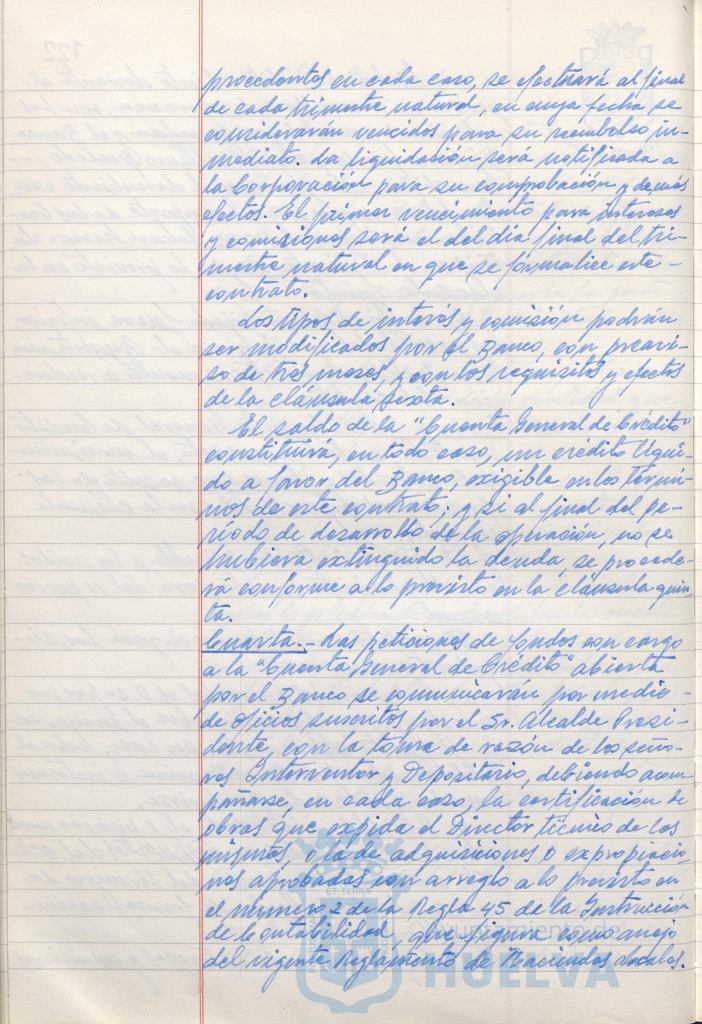 procedentes en cada caso, se efectuará al final
de cada trimestre natural, en cuya fecha se
considerarán vencidos para su reembolso in-
mediato. La liquidación será notificada a
la Corporación para su comprobación y demás
efectos. El primer vencimiento para intereses
y comisiones será el del día final del tri-
mestre natural en que se formalice este -
contrato.
Los tipos de interés y comisión podrán
ser modificados por el Banco, con preavi-
so de tres meses, y con los requisitos y efectos
de la cláusula sexta.
El saldo de la "Cuenta General de Crédito"
constituirá, en todo caso, un crédito líqui-
do a favor del Banco, exigible en los térmi-
nos de este contrato; y si al final del pe-
ríodo de desarrollo de la operación, no se
hubiera extinguido la deuda, se procede-
rá conforme a lo previsto en la cláusula quin-
ta.
Cuarta.- Las peticiones de fondos con cargo
a la "Cuenta General de Crédito" abierta
por el Banco se comunicarán por medio -
de oficios suscritos por el Sr. Alcalde Presi-
dente, con la toma de razón de los seño-
res Interventor y Depositario, debiendo acom-
pañarse, en cada caso, la certificación de
obras que expida el Director técnico de las
mismas, o la de adquisiciones o expropiacio-
nes aprobadas con arreglo a lo previsto en
el número 2 de la Regla 45 de la Instrucción
de Contabilidad, que figura como anejo
del vigente Reglamento de Haciendas Locales.
Ayuntamiento de
HUELVA